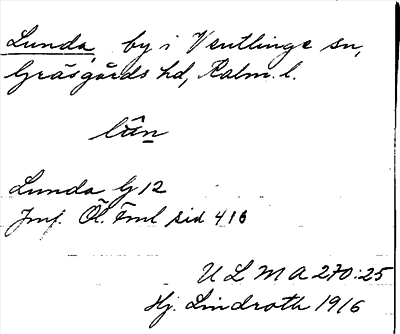 Lunda, by i Ventlinge sn,
Gräsgårds hd, Kalm. l.
lûn
Lunda G 12
Jmf. Öl. Förml sid 416
U L M A 270:25
Hj. Lindroth 1916